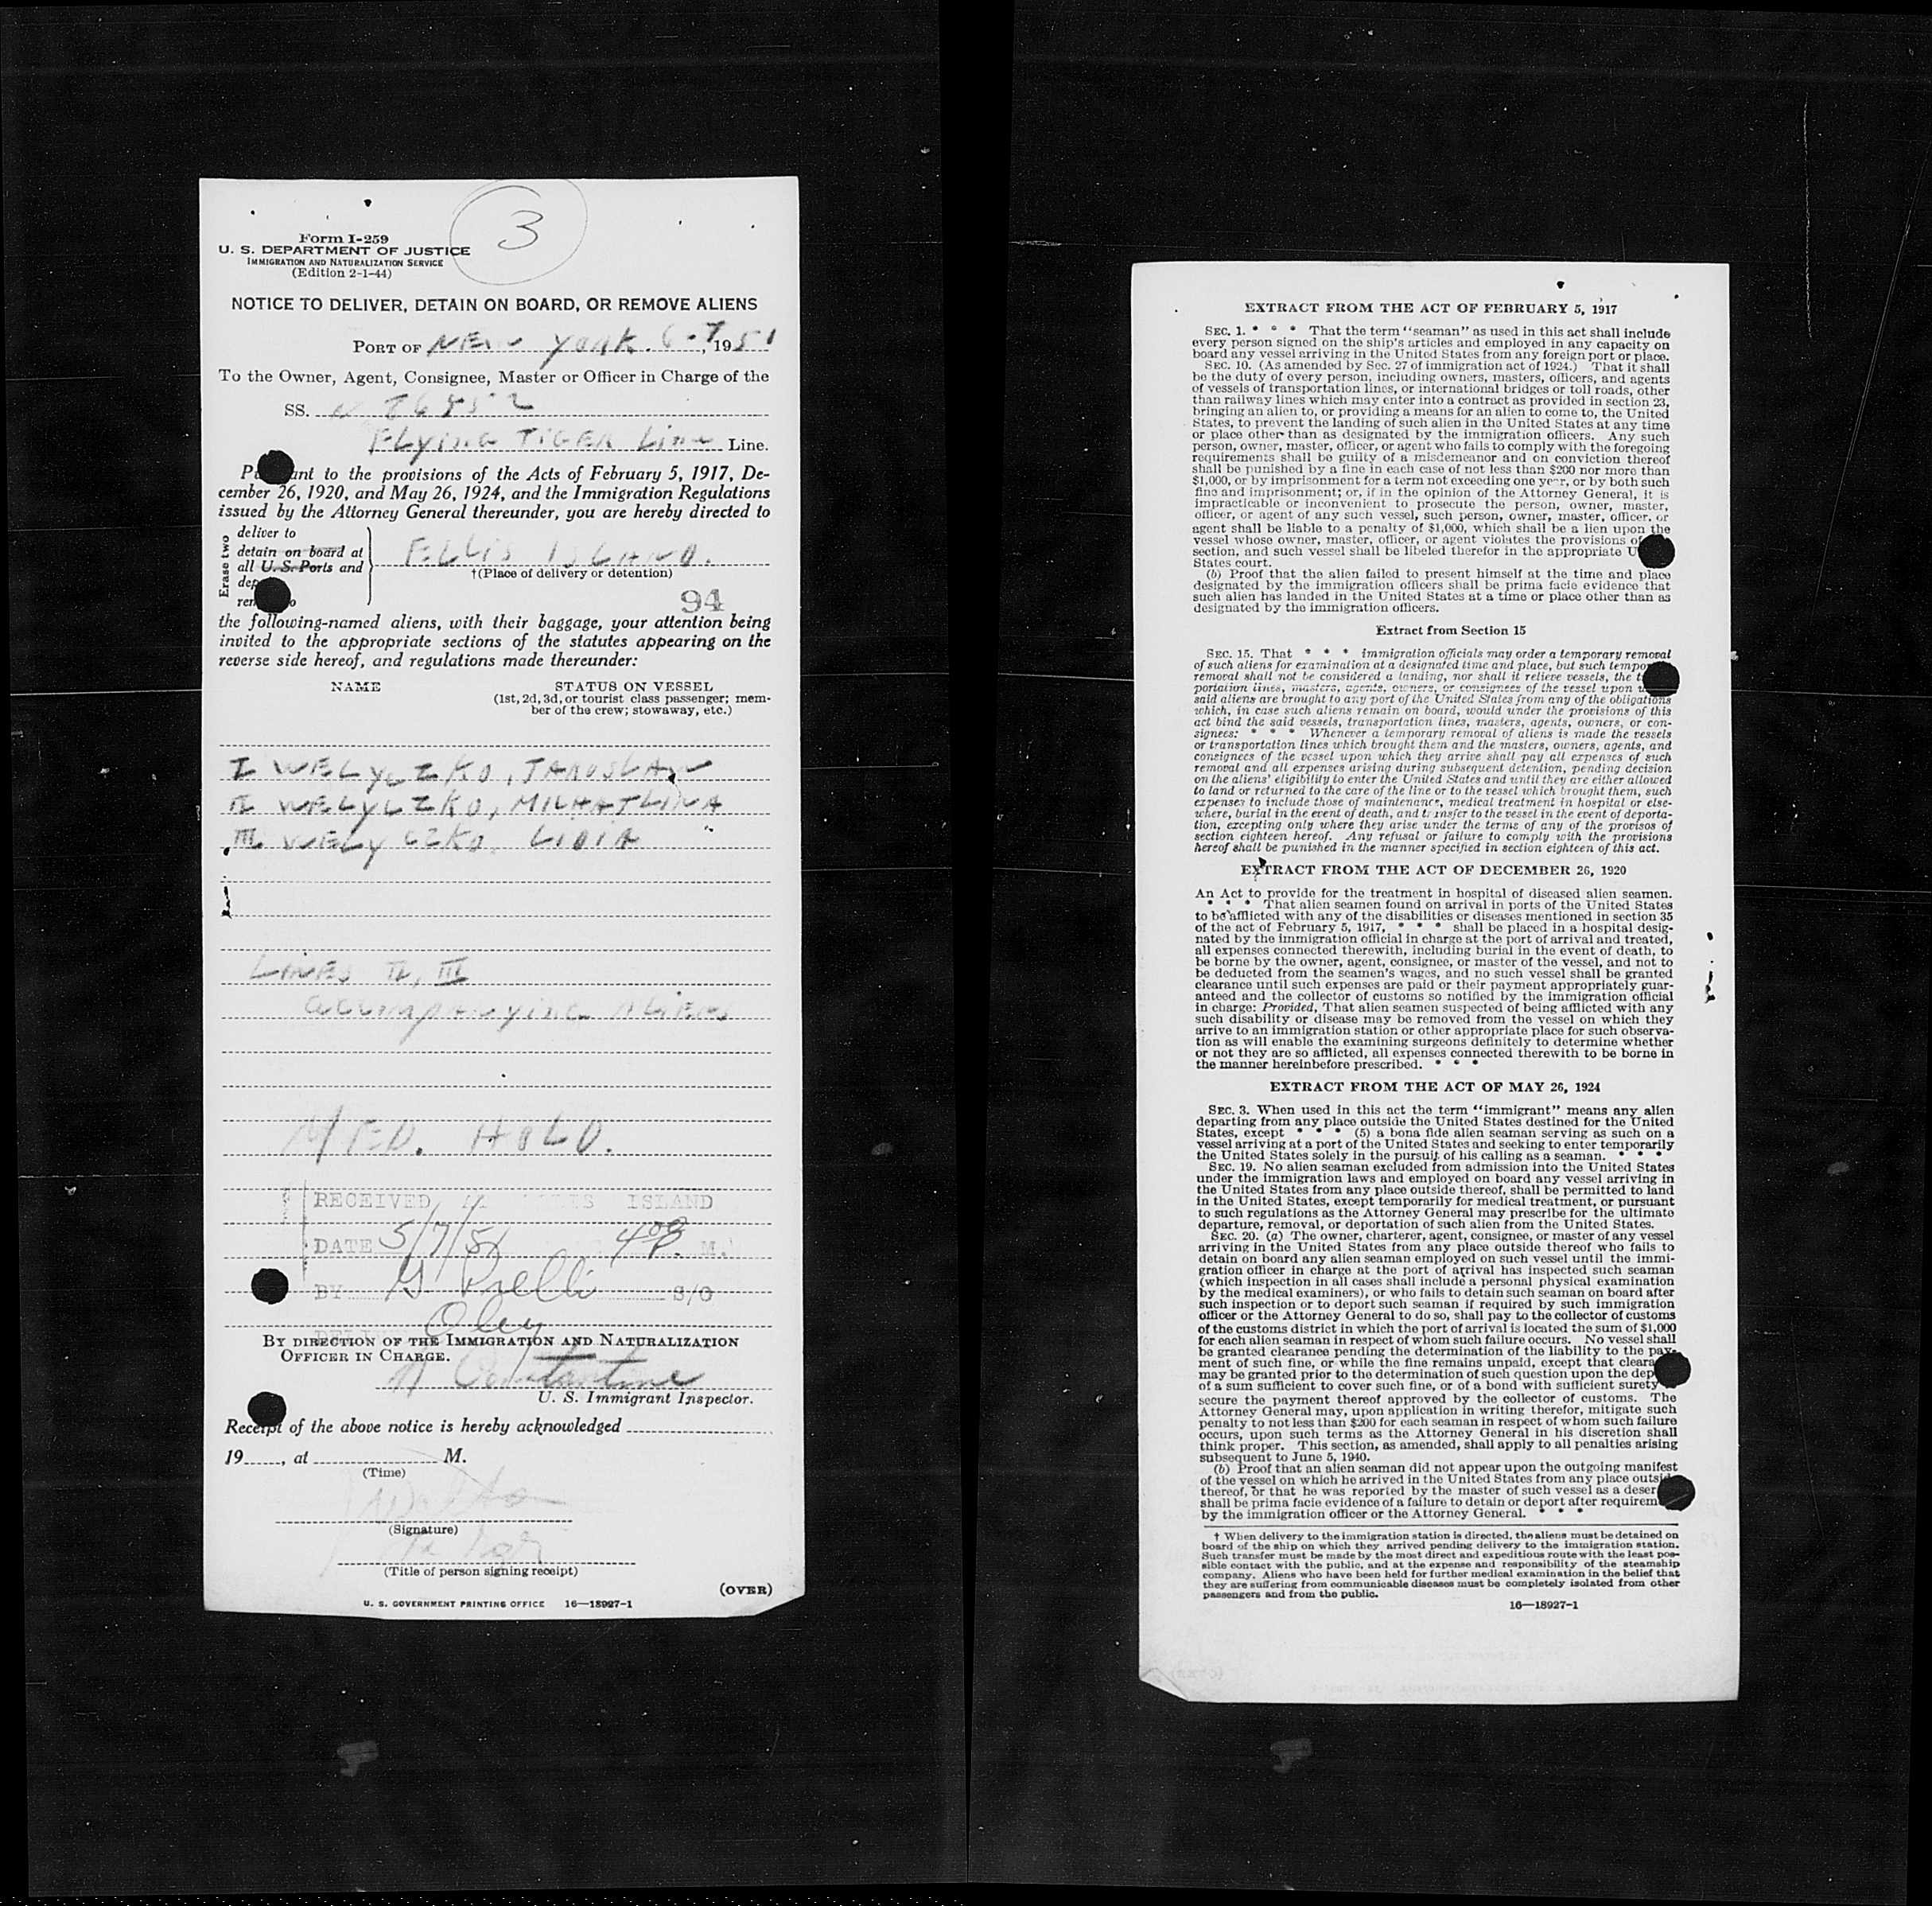 3
Form I-259
U. S. DEPARTMENT OF JUSTICE
IMMIGRATION AND NATURALIZATION SERVICE
(Edition 2-1-44)
NOTICE TO DELIVER, DETAIN ON BOARD, OR REMOVE ALIENS
PORT OF NEW YORK. 6-7, 1951
To the Owner, Agent, Consignee, Master or Officer in Charge of the
SS. N
FLYING TIGER LINE Line.
to the provisions of the Acts of February 5, 1917, De-
cember 26, 1920, and May 26, 1924, and the Immigration Regulations
issued by the Attorney General thereunder, you are hereby directed to
Erase two
deliver to
detain on board at
all U. S. Ports and
ELLIS ISLAND.
†(Place of delivery or detention)
94
the following-named aliens, with their baggage, your attention being
invited to the appropriate sections of the statutes appearing on the
reverse side hereof, and regulations made thereunder:
NAME STATUS ON VESSEL
(1st, 2d, 3d, or tourist class passenger; mem-
ber of the crew; stowaway, etc.)
I WELYCZKO, JAROSLAW
II WELYCZKO, MICHAJLINA
III WELYCZKO, LIDIA
LINES II, III
ACCOMPANYING ALIEN
MED. HOLD.
RECEIVED ISLAND
DATE 5/7/51 4 00 P. M.
BY G. Prelli S/O
Oley
BY DIRECTION OF THE IMMIGRATION AND NATURALIZATION
OFFICER IN CHARGE.
U. S. Immigrant Inspector.
Receipt of the above notice is hereby acknowledged
19 , at M.
(Time)
(Signature)
(Title of person signing receipt)
(OVER)
U. S. GOVERNMENT PRINTING OFFICE 16—18927-1
EXTRACT FROM THE ACT OF FEBRUARY 5, 1917
SEC. 1. * * * That the term "seaman" as used in this act shall include
every person signed on the ship's articles and employed in any capacity on
board any vessel arriving in the United States from any foreign port or place.
SEC. 10. (As amended by Sec. 27 of immigration act of 1924.) That it shall
be the duty of every person, including owners, masters, officers, and agents
of vessels of transportation lines, or international bridges or toll roads, other
than railway lines which may enter into a contract as provided in section 23,
bringing an alien to, or providing a means for an alien to come to, the United
States, to prevent the landing of such alien in the United States at any time
or place other than as designated by the immigration officers. Any such
person, owner, master, officer, or agent who fails to comply with the foregoing
requirements shall be guilty of a misdemeanor and on conviction thereof
shall be punished by a fine in each case of not less than $200 nor more than
$1,000, or by imprisonment for a term not exceeding one year, or by both such
fine and imprisonment; or, if in the opinion of the Attorney General, it is
impracticable or inconvenient to prosecute the person, owner, master,
officer, or agent of any such vessel, such person, owner, master, officer, or
agent shall be liable to a penalty of $1,000, which shall be a lien upon the
vessel whose owner, master, officer, or agent violates the provisions of
section, and such vessel shall be libeled therefor in the appropriate U
States court.
(b) Proof that the alien failed to present himself at the time and place
designated by the immigration officers shall be prima facie evidence that
such alien has landed in the United States at a time or place other than as
designated by the immigration officers.
Extract from Section 15
SEC. 15. That * * * immigration officials may order a temporary removal
of such aliens for examination at a designated time and place, but such tempor
removal shall not be considered a landing, nor shall it relieve vessels, the t
portation lines, masters, agents, owners, or consignees of the vessel upon w
said aliens are brought to any port of the United States from any of the obligations
which, in case such aliens remain on board, would under the provisions of this
act bind the said vessels, transportation lines, masters, agents, owners, or con-
signees: * * * Whenever a temporary removal of aliens is made the vessels
or transportation lines which brought them and the masters, owners, agents, and
consignees of the vessel upon which they arrive shall pay all expenses of such
removal and all expenses arising during subsequent detention, pending decision
on the aliens' eligibility to enter the United States and until they are either allowed
to land or returned to the care of the line or to the vessel which brought them, such
expenses to include those of maintenance, medical treatment in hospital or else-
where, burial in the event of death, and transfer to the vessel in the event of deporta-
tion, excepting only where they arise under the terms of any of the provisos of
section eighteen hereof. Any refusal or failure to comply with the provisions
hereof shall be punished in the manner specified in section eighteen of this act.
EXTRACT FROM THE ACT OF DECEMBER 26, 1920
An Act to provide for the treatment in hospital of diseased alien seamen.
* * * That alien seamen found on arrival in ports of the United States
to be afflicted with any of the disabilities or diseases mentioned in section 35
of the act of February 5, 1917, * * * shall be placed in a hospital desig-
nated by the immigration official in charge at the port of arrival and treated,
all expenses connected therewith, including burial in the event of death, to
be borne by the owner, agent, consignee, or master of the vessel, and not to
be deducted from the seamen's wages, and no such vessel shall be granted
clearance until such expenses are paid or their payment appropriately guar-
anteed and the collector of customs so notified by the immigration official
in charge: Provided, That alien seamen suspected of being afflicted with any
such disability or disease may be removed from the vessel on which they
arrive to an immigration station or other appropriate place for such observa-
tion as will enable the examining surgeons definitely to determine whether
or not they are so afflicted, all expenses connected therewith to be borne in
the manner hereinbefore prescribed. * * *
EXTRACT FROM THE ACT OF MAY 26, 1924
SEC. 3. When used in this act the term "immigrant" means any alien
departing from any place outside the United States destined for the United
States, except * * * (5) a bona fide alien seaman serving as such on a
vessel arriving at a port of the United States and seeking to enter temporarily
the United States solely in the pursuit of his calling as a seaman. * * *
SEC. 19. No alien seaman excluded from admission into the United States
under the immigration laws and employed on board any vessel arriving in
the United States from any place outside thereof, shall be permitted to land
in the United States, except temporarily for medical treatment, or pursuant
to such regulations as the Attorney General may prescribe for the ultimate
departure, removal, or deportation of such alien from the United States.
SEC. 20. (a) The owner, charterer, agent, consignee, or master of any vessel
arriving in the United States from any place outside thereof who fails to
detain on board any alien seaman employed on such vessel until the immi-
gration officer in charge at the port of arrival has inspected such seaman
(which inspection in all cases shall include a personal physical examination
by the medical examiners), or who fails to detain such seaman on board after
such inspection or to deport such seaman if required by such immigration
officer or the Attorney General to do so, shall pay to the collector of customs
of the customs district in which the port of arrival is located the sum of $1,000
for each alien seaman in respect of whom such failure occurs. No vessel shall
be granted clearance pending the determination of the liability to the pay-
ment of such fine, or while the fine remains unpaid, except that cleara
may be granted prior to the determination of such question upon the dep
of a sum sufficient to cover such fine, or of a bond with sufficient surety
secure the payment thereof approved by the collector of customs. The
Attorney General may, upon application in writing therefor, mitigate such
penalty to not less than $200 for each seaman in respect of whom such failure
occurs, upon such terms as the Attorney General in his discretion shall
think proper. This section, as amended, shall apply to all penalties arising
subsequent to June 5, 1940.
(b) Proof that an alien seaman did not appear upon the outgoing manifest
of the vessel on which he arrived in the United States from any place outsid
thereof, or that he was reported by the master of such vessel as a deser
shall be prima facie evidence of a failure to detain or deport after requirem
by the immigration officer or the Attorney General. * * *
† When delivery to the immigration station is directed, the aliens must be detained on
board of the ship on which they arrived pending delivery to the immigration station.
Such transfer must be made by the most direct and expeditious route with the least pos-
sible contact with the public, and at the expense and responsibility of the steamship
company. Aliens who have been held for further medical examination in the belief that
they are suffering from communicable diseases must be completely isolated from other
passengers and from the public.
16—18927-1